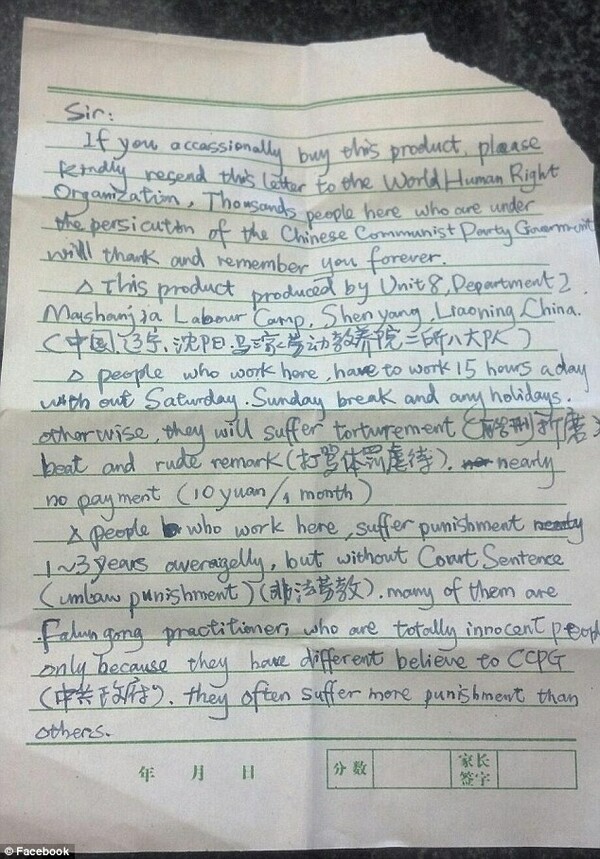 Sir:
If you occassionally buy this product, please
kindly resend this letter to the World Human Right
Organization, Thousands people here who are under
the persicuttion of the Chinese Communist Party Government
will thank and remember you forever.
△ This product produced by Unit 8, Department 2,
Mashanjia Labour Camp, Shenyang, Liaoning, China.
(中国,辽宁,沈阳,马三家劳动教养院二所八大队)
△ people who work here, have to work 15 hours a day
with out Saturday. Sunday break and any holidays.
otherwise, they will suffer torturement (酷刑折磨)
beat and rude remark (打骂体罚虐待). nearly
no payment (10 yuan/1 month)
△ people who work here, suffer punishment
1~3 years averagelly, but without Court Sentence
(unlaw punishment) (非法劳教). many of them are
Falun gong practitioner, who are totally innocent peopl
only because they have different believe to CCPG
(中共政府). they often suffer more punishment than
others.
年 月 日
分数
家长
签字
© Facebook